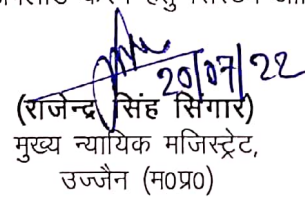 20/07/22
(राजेन्द्र सिंह सिंगार)
मुख्य न्यायिक मजिस्ट्रेट,
उज्जैन (म०प्र०)